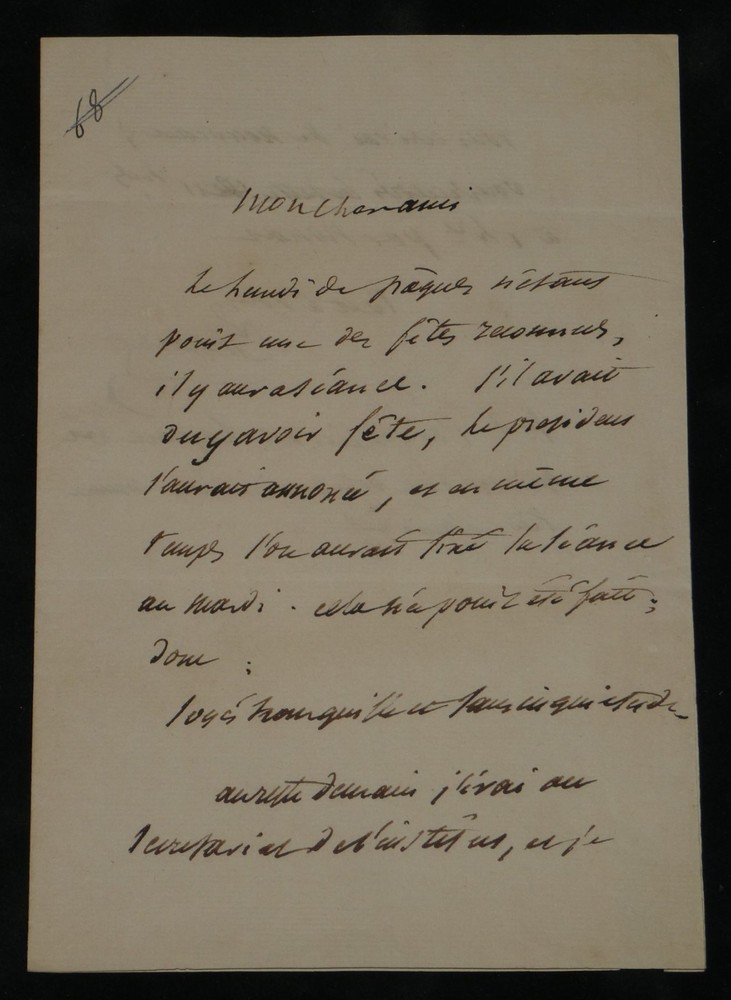 68
Mon cher ami
Le Lundi de pâques n'étant
point une des fêtes reconnues,
il y aura séance. S'il avait
du y avoir fête, le président
l'aurait annoncé, et en même
temps l'on aurait fixé la séance
au mardi. cela n'a point été fait;
donc :
soyés tranquille et sans inquietude
au reste demain j'irai au
secretariat de l'institut, et je